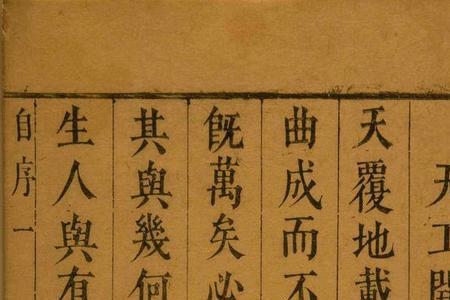 天工開
天覆地載
曲成而不
旣萬矣必
其與幾何
生人與有
自序一